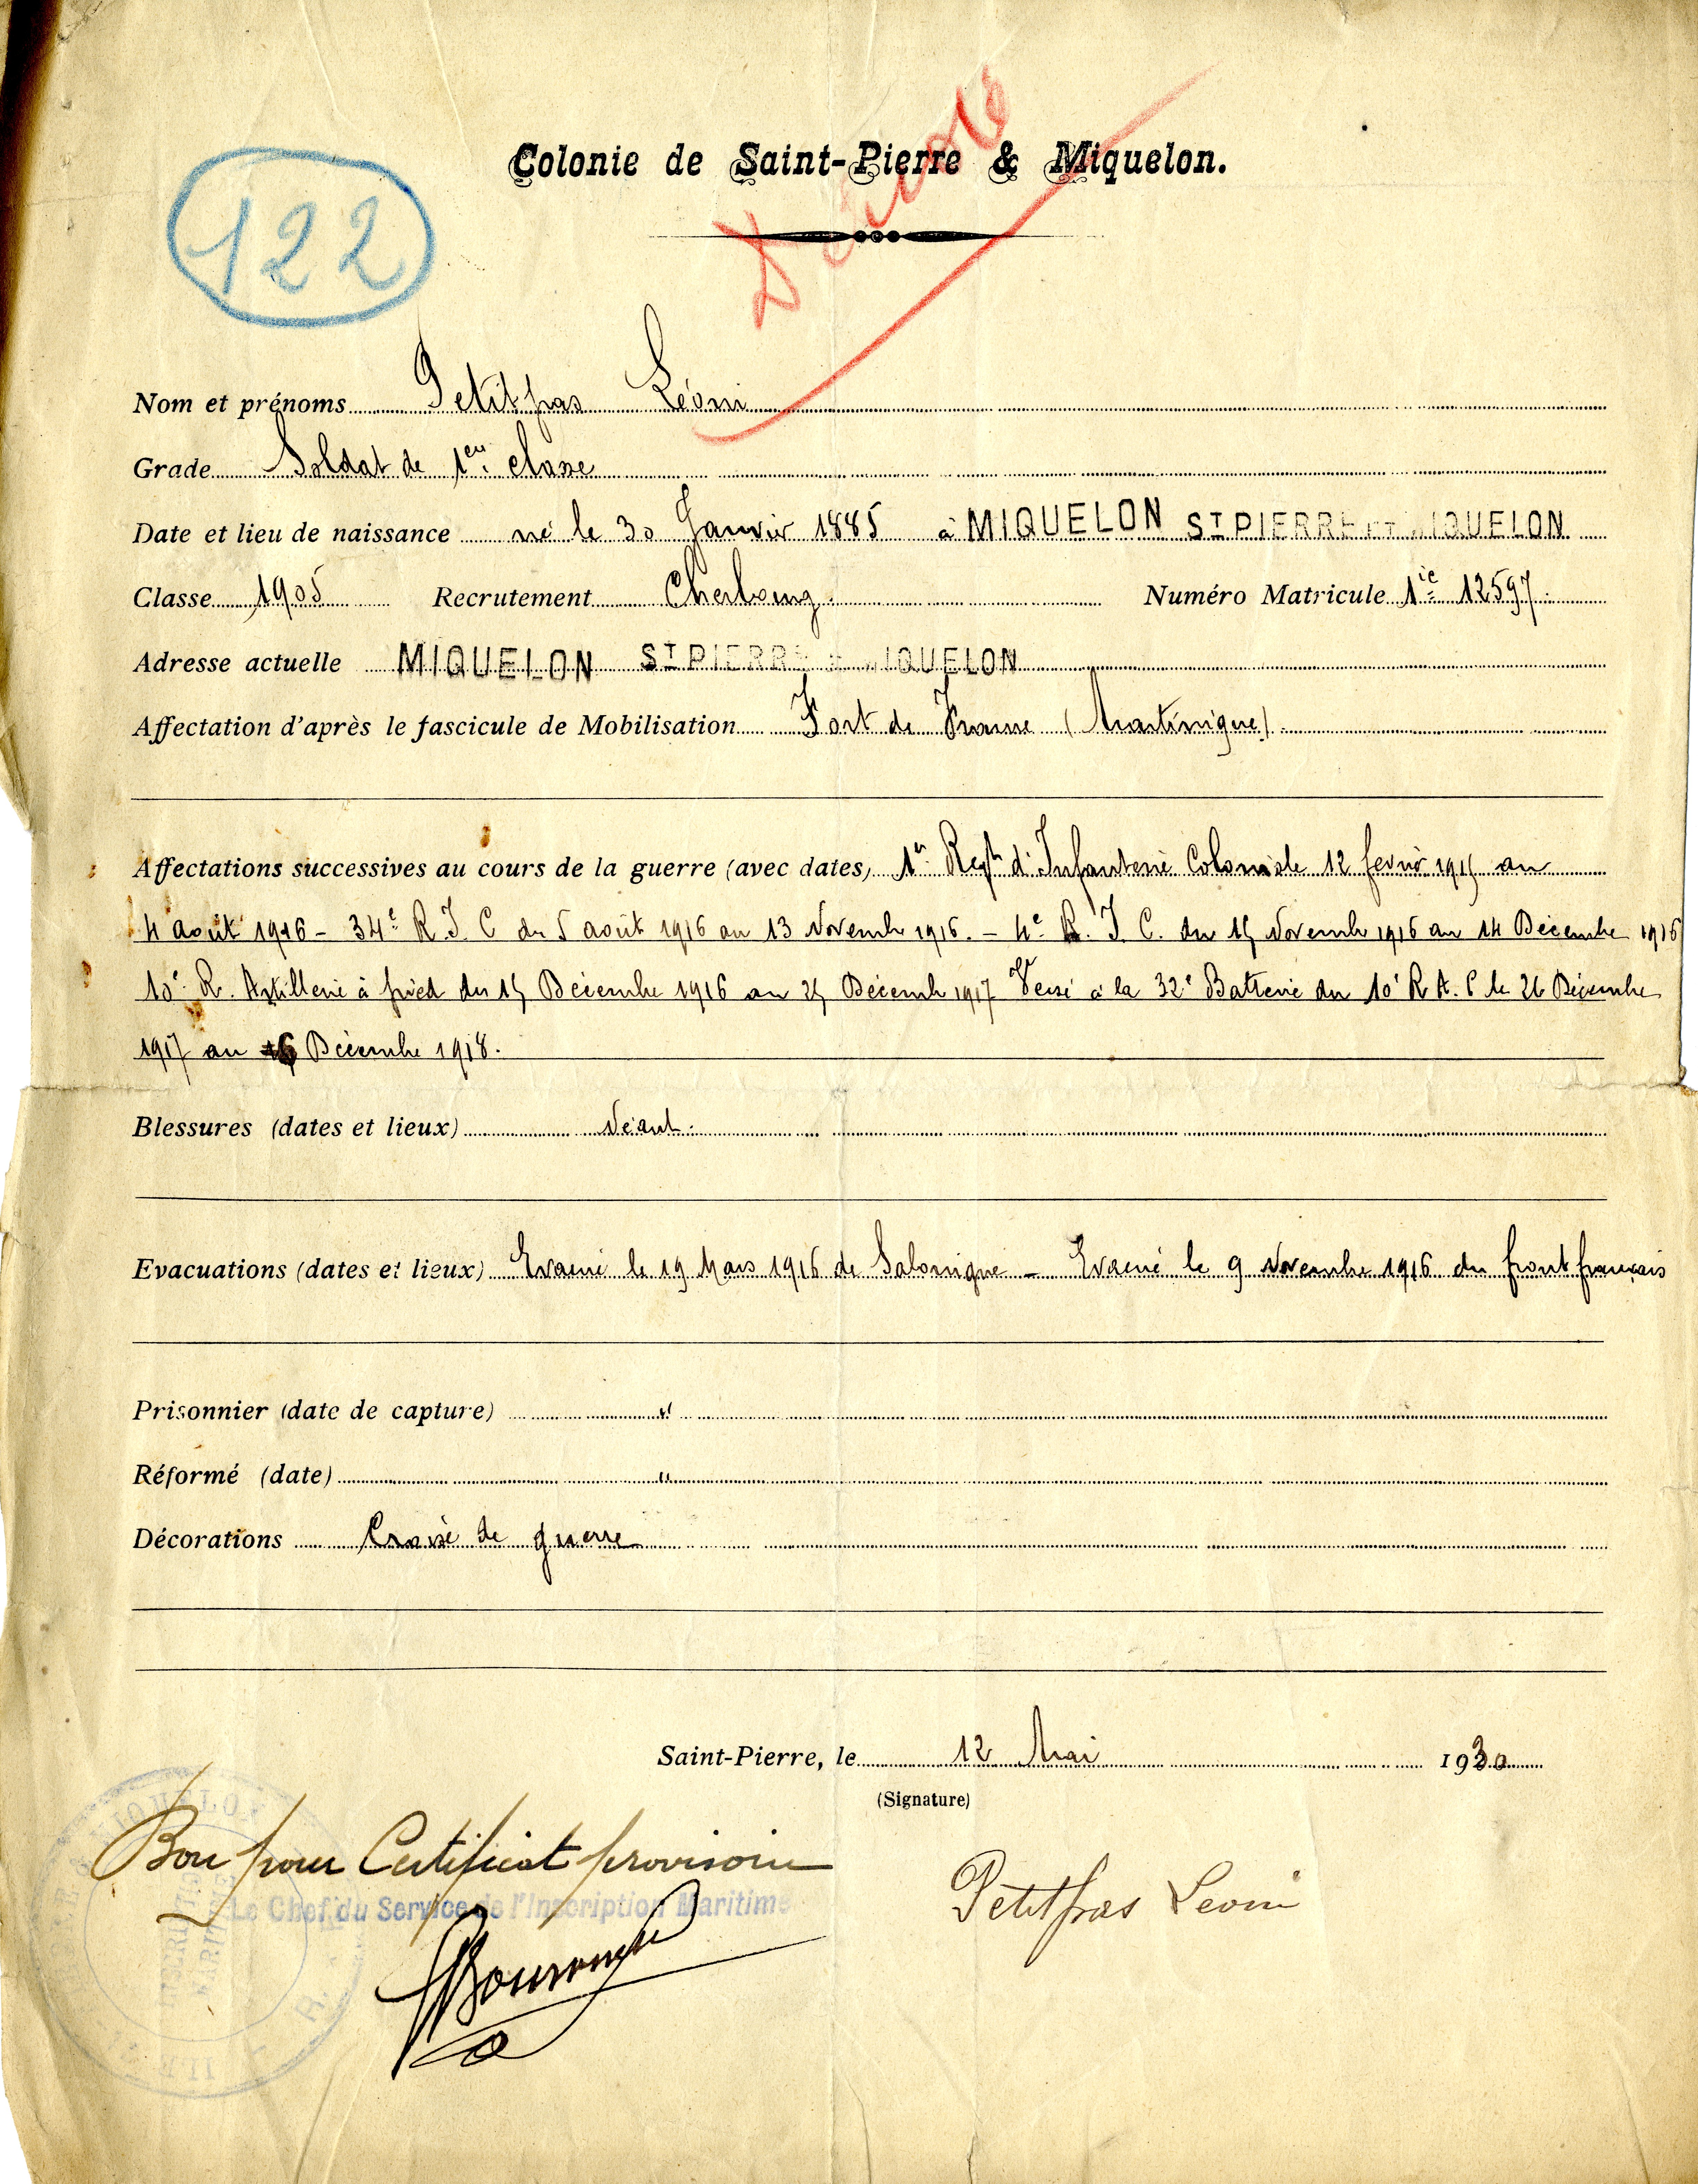 122
Colonie de Saint-Pierre & Miquelon.
Nom et prénoms Petitpas Léoni
Grade Soldat de 1ère classe
Date et lieu de naissance né le 30 Janvier 1885 à MIQUELON ST PIERRE ET MIQUELON
Classe 1905 Recrutement Cherbourg. Numéro Matricule 1ie 12597.
Adresse actuelle MIQUELON ST PIERRE & MIQUELON
Affectation d'après le fascicule de Mobilisation Fort de France (Martinique).
Affectations successives au cours de la guerre (avec dates) 1er Regt d'Infanterie Coloniale 12 fevrier 1915 au
4 août 1916 - 34e R. I. C du 5 août 1916 au 13 Novembre 1916. - 4e R. I. C. du 15 Novembre 1916 au 14 Décembre 1916
10e R. Artillerie à pied du 15 Décembre 1916 au 25 Décembre 1917 Versé à la 32e Batterie du 10e R A. P le 26 Décembre
1917 au 16 Décembre 1918.
Blessures (dates et lieux) Néant.
Evacuations (dates et lieux) Evacué le 19 Mars 1916 de Salonique - Evacué le 9 Novembre 1916 du front français
Prisonnier (date de capture) "
Réformé (date) "
Décorations Croix de guerre
Saint-Pierre, le 12 Mai 1930
(Signature)
Bon pour Certificat provisoire
Le Chef du Service de l'Inscription Maritime
Petitpas Leoni